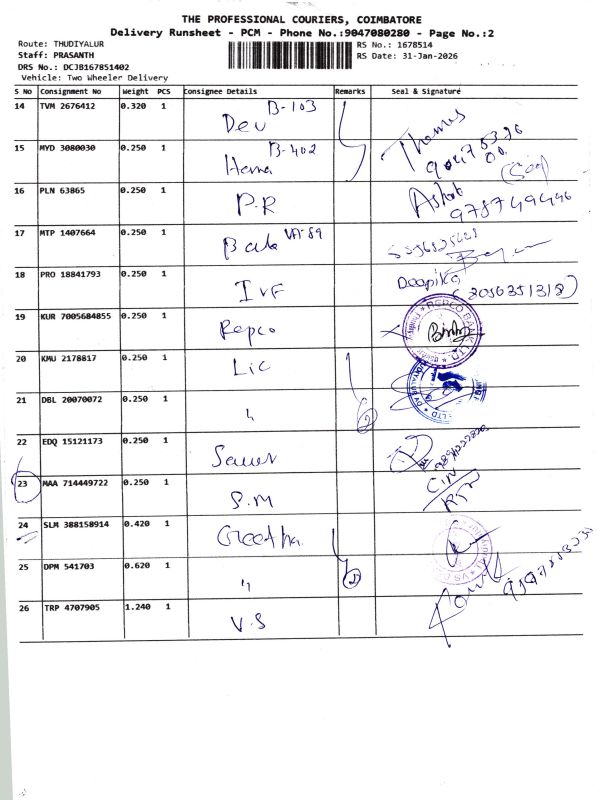 THE PROFESSIONAL COURIERS, COIMBATORE
Delivery Runsheet - PCM - Phone No.:9047080280 - Page No.:2
Route: THUDIYALUR
Staff: PRASANTH
DRS No.: DCJB167851402
Vehicle: Two Wheeler Delivery
RS No.: 1678514
RS Date: 31-Jan-2026
S No Consignment No Weight PCS Consignee Details Remarks Seal & Signature
14 TVM 2676412 0.320 1 Dev B-103
15 MYD 3080030 0.250 1 Hema B-402 Thomas
16 PLN 63865 0.250 1 P.R
17 MTP 1407664 0.250 1 Bala VA-89
18 PRO 18841793 0.250 1 IVF Deepika
19 KUR 7005684855 0.250 1 Repco REPCO BANK LTD
20 KMU 2178817 0.250 1 Lic
21 DBL 20070072 0.250 1 " 2
22 EDQ 15121173 0.250 1
23 MAA 714449722 0.250 1 S.M
24 SLM 388158914 0.420 1 Geetha
25 DPM 541703 0.620 1 " 2
26 TRP 4707905 1.240 1 V.S